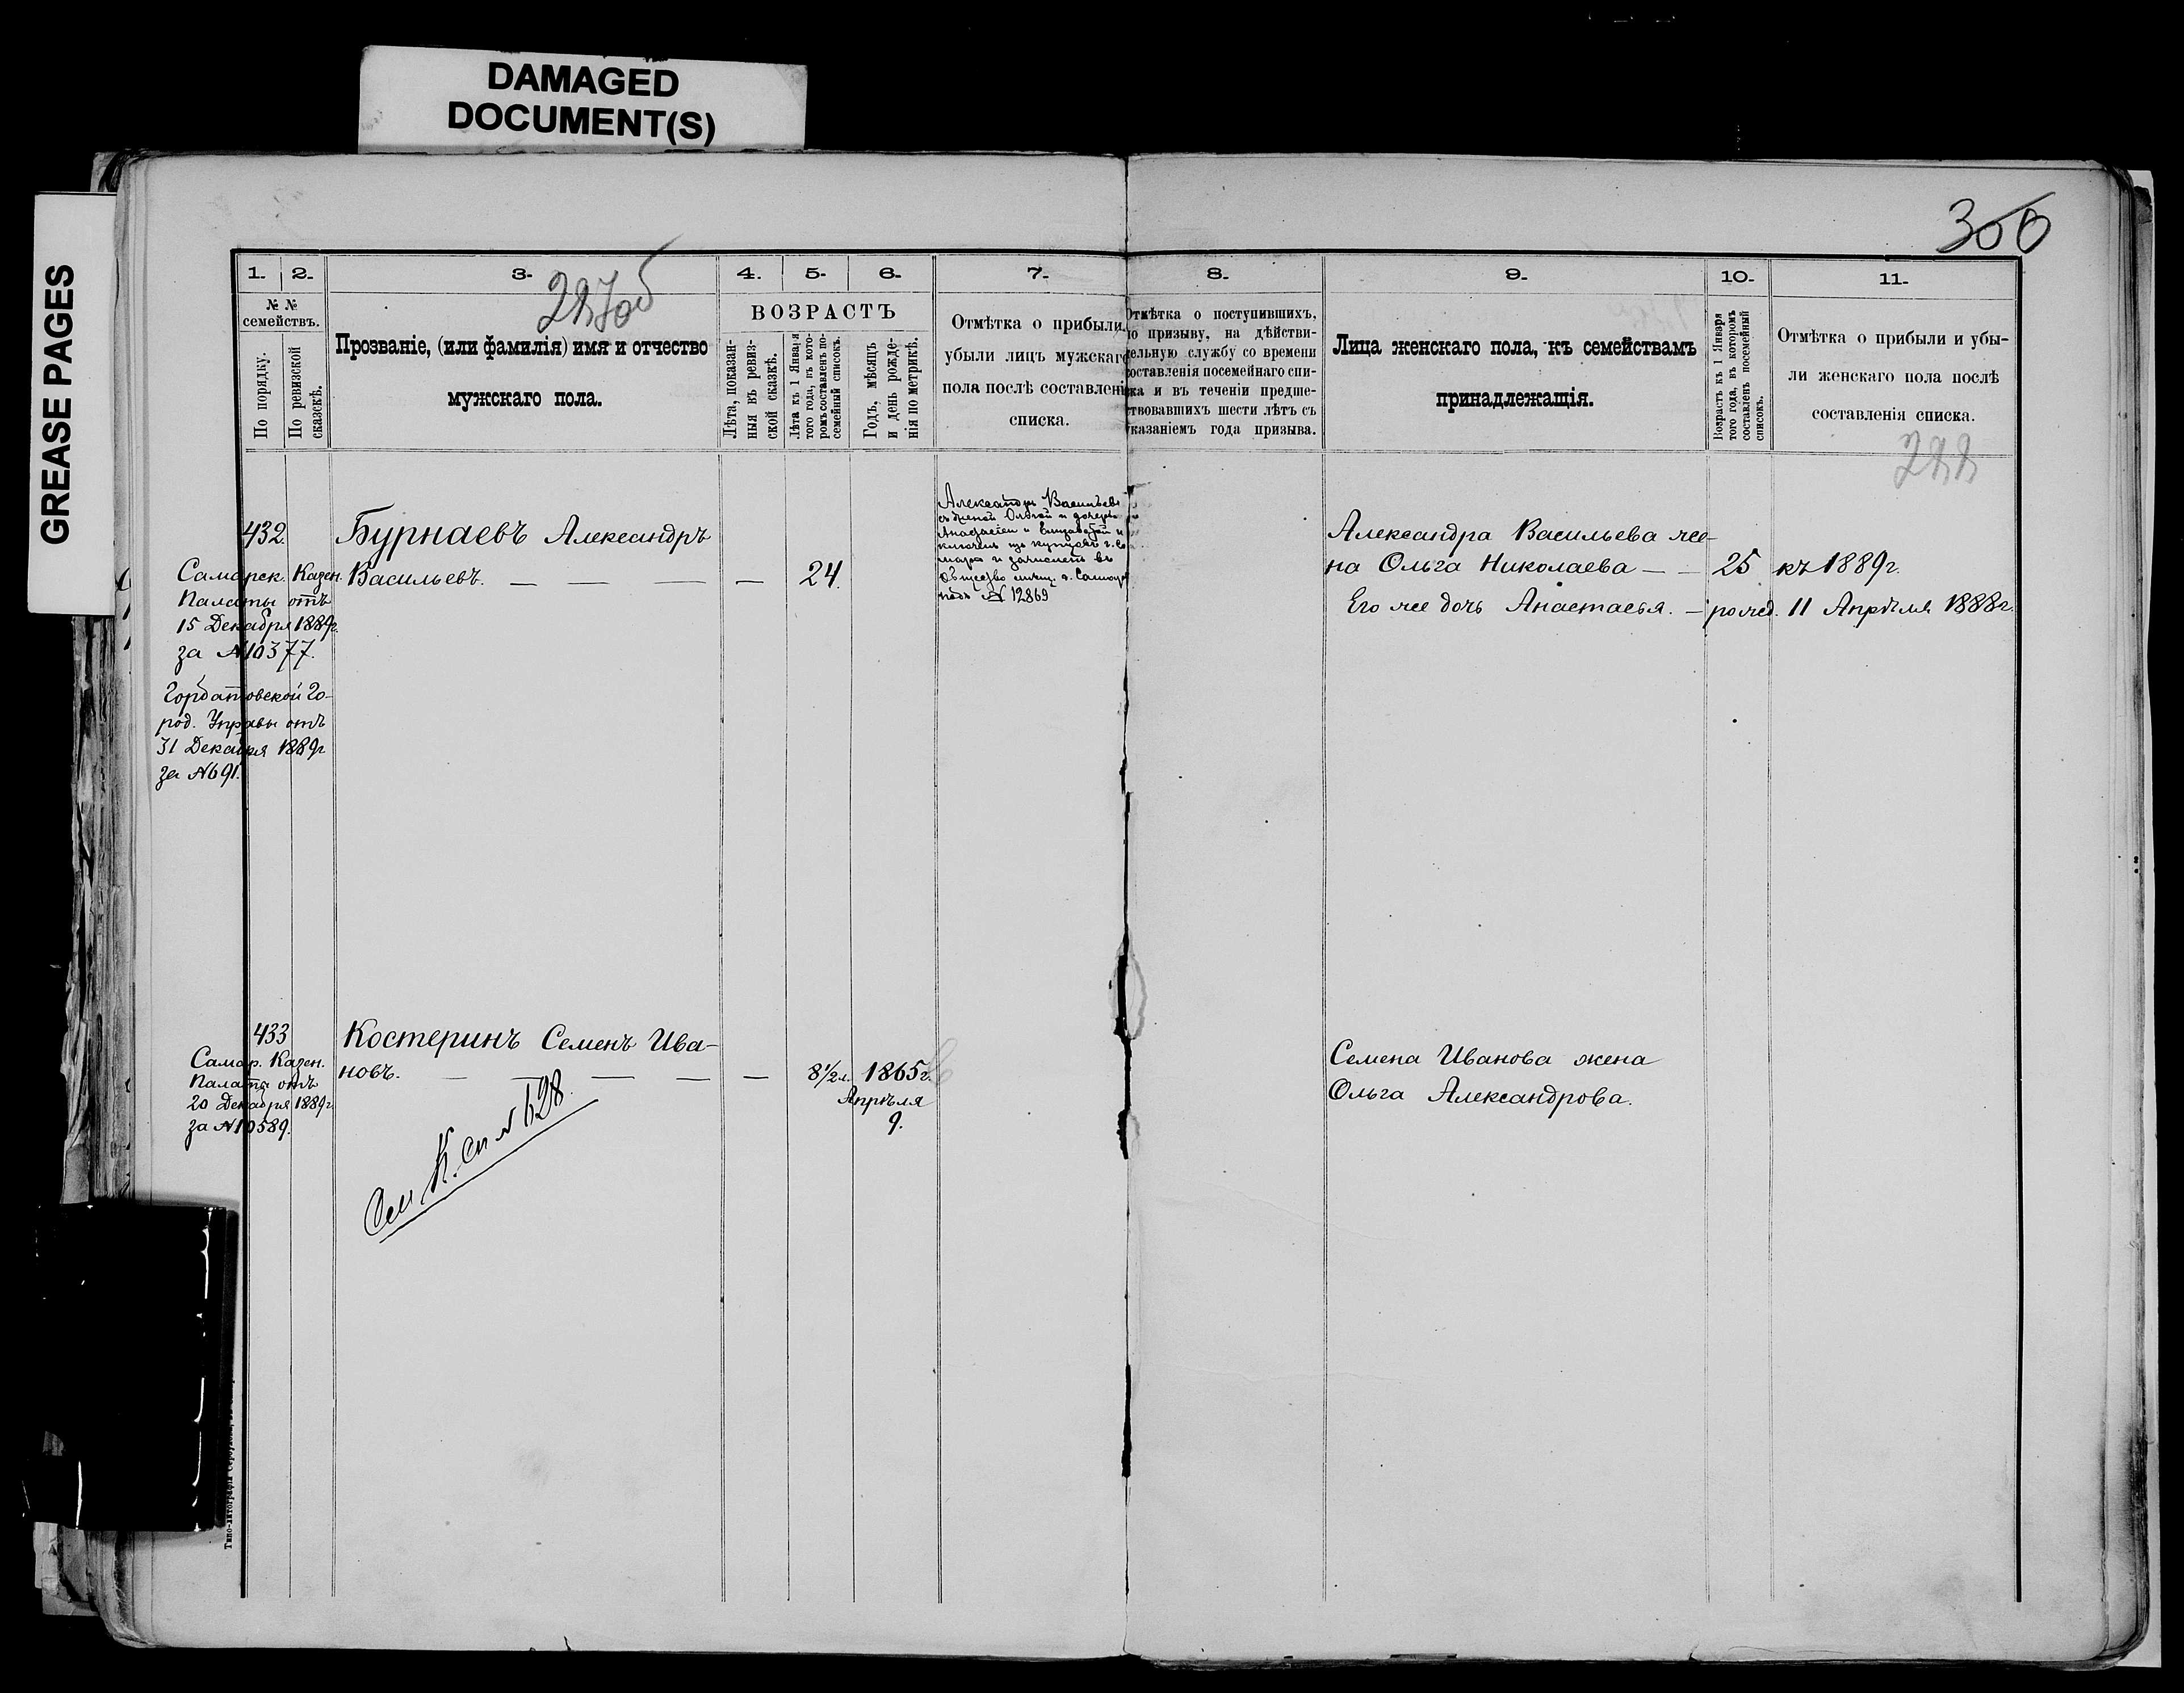 DAMAGED
DOCUMENT(S)
GREASE PAGES
300
1. 2. 3. 4. 5. 6. 7. 8. 9. 10. 11.
287об
№ №
семействъ.
По порядку.
По ревизской
сказскѣ.
Прозваніе, (или фамилія) имя и отчество
мужскаго пола.
ВОЗРАСТЪ
Лѣта, показан-
ныя въ ревиз-
ской сказкѣ.
Лѣта къ 1 Января
того года, въ кото-
ромъ составленъ по-
семейный списокъ.
Годъ, мѣсяцъ
и день рожде-
нія по метрикѣ.
Отмѣтка о прибыли
убыли лицъ мужскаго
пола послѣ составленія
списка.
Отмѣтка о поступившихъ,
по призыву, на дѣйстви-
тельную службу со времени
составленія посемейнаго спи-
ска и въ теченіи предше-
ствовавшихъ шести лѣтъ съ
указаніемъ года призыва.
Лица женскаго пола, къ семействамъ
принадлежащія.
Возрастъ къ 1 Января
того года, въ которомъ
составленъ посемейный
списокъ.
Отмѣтка о прибыли и убы-
ли женскаго пола послѣ
составленія списка.
288
432.
Самарск. Казен.
Палаты отъ
15 Декабря 1889г.
за №10377.
Горбатовской Го-
род. Управы отъ
31 Декабря 1889г
за №691.
Бурнаевъ Александръ
Васильевъ. — — — — 24.
Александръ Васильевъ
съ женой Ольгой и дочерь
Анастасіей и Елизаветой и
изъ купцовъ г. Са
мары и зачисленъ въ
Общество мѣщ. г. Самары
подъ № 12869
Александра Васильева же-
на Ольга Николаева — — 25 къ 1889г.
Его же дочь Анастасья. — рожд. 11 Апрѣля 1888г.
433
Самар. Казен.
Палата отъ
20 Декабря 1889г
за №10589.
Костеринъ Семенъ Ива-
новъ. — — — — — 8½л. 1865г.
Апрѣля
9.
См К. сп № 628.
Семена Иванова жена
Ольга Александрова.